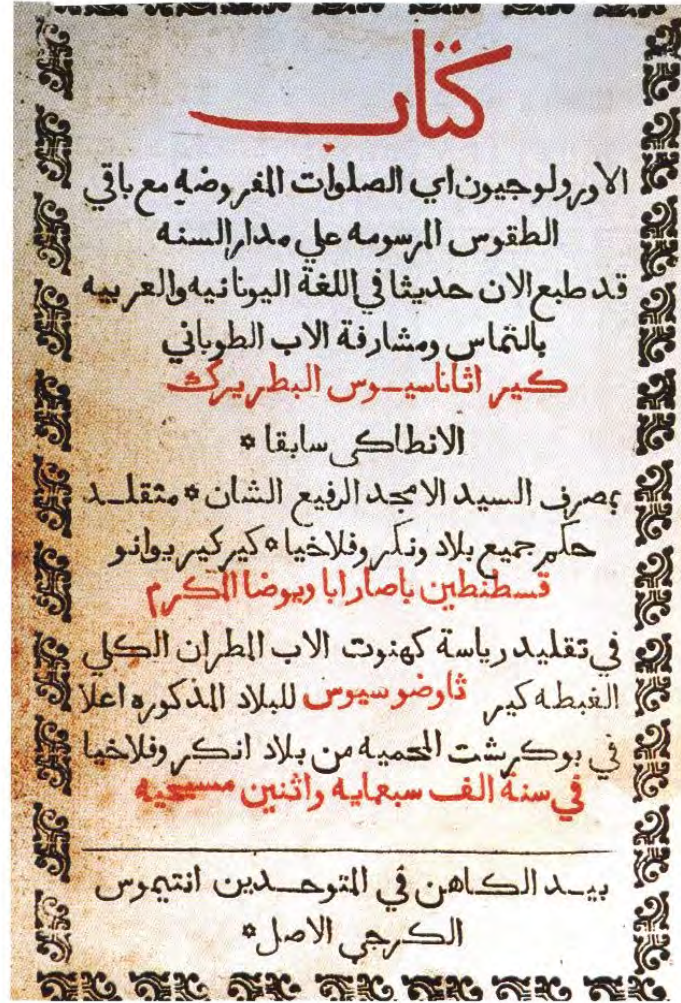 كتاب
الاورولوجيون اي الصلوات المفروضه مع باقي
الطقوس المرسومه علي مدار السنه
قد طبع الان حديثا في اللغة اليونانيه والعربيه
بالتماس ومشارفة الاب الطوباني
كير اثاناسيوس البطريرك
الانطاكي سابقا *
بمصرف السيد الامجد الرفيع الشان * متقلد
حكم جميع بلاد ونكر وفلاخيا * كير كير يوانو
قسطنطين باصارابا ويوضا المكرم
في تقليد رياسة كهنوت الاب المطران الكلي
الغبطه كير ثاوضوسيوس للبلاد المذكوره اعلا
في بوكرشت المحميه من بلاد انكر وفلاخيا
في سنة الف سبعمايه واثنين مسيحيه
بيد الكاهن في المتوحدين انتيموس
الكرجي الاصل *